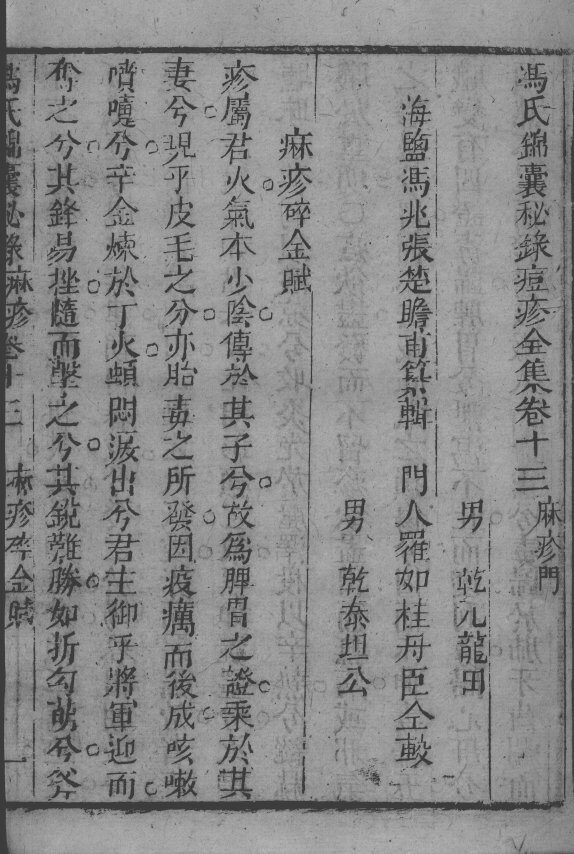 馮氏錦囊秘錄痘疹全集卷十三 麻疹門
男 乾元龍田
海鹽馮兆張楚瞻甫纂輯 門人羅如桂丹臣仝較
男 乾泰坦公
麻疹碎金賦
疹屬君火氣本少陰傳於其子兮故為脾胃之證乘於其
妻兮現乎皮毛之分亦胎毒之所發因疫癘而後成咳嗽
噴嚏兮辛金煉於丁火煩悶淚出兮君主御乎將軍迎而
奪之兮其鋒易挫隨而擊之兮其銳難勝如折勾萌兮斧
馮氏錦囊秘錄麻疹卷十三 麻疹碎金賦 一